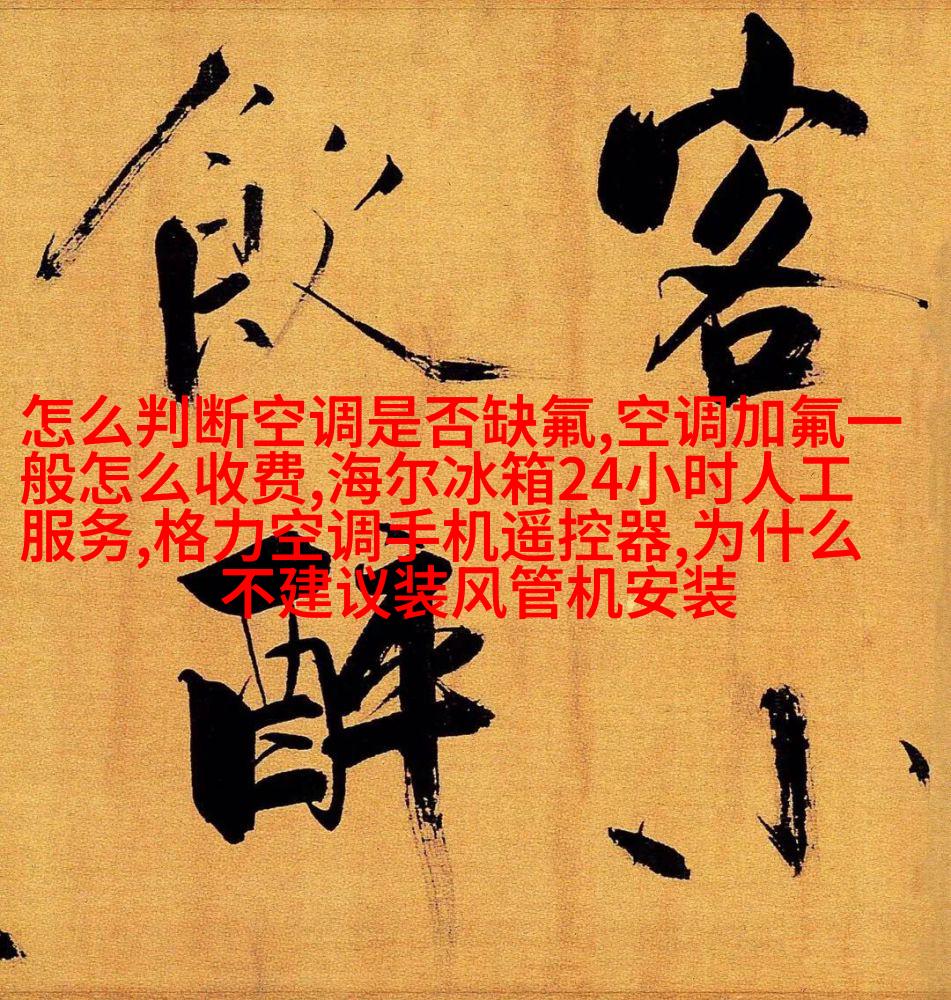 客小
飲醉
怎么判断空调是否缺氟,空调加氟一
般怎么收费,海尔冰箱24小时人工
服务,格力空调手机遥控器,为什么
不建议装风管机安装